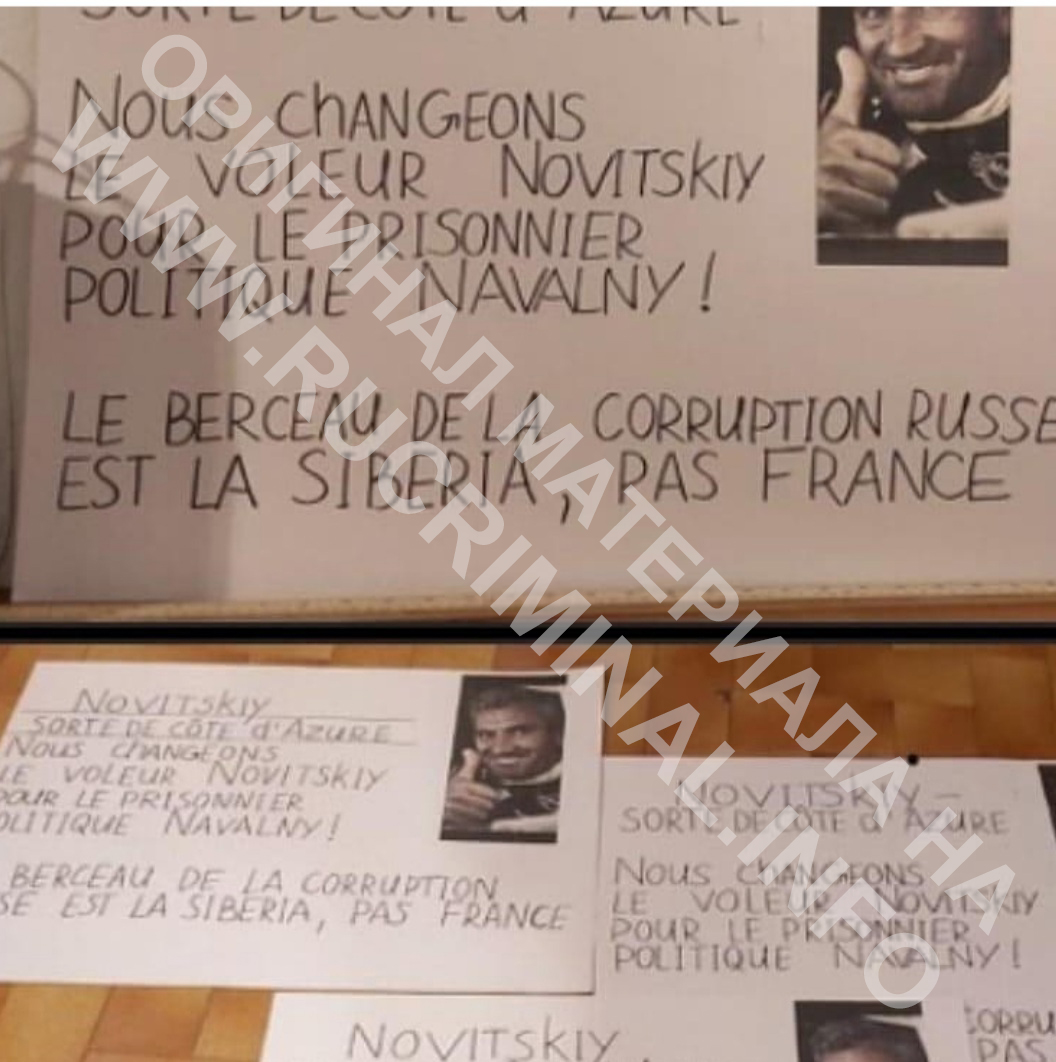 SORTE DE CÔTE d'AZURE
NOUS CHANGEONS
LE VOLEUR NOVITSKIY
POUR LE PRISONNIER
POLITIQUE NAVALNY!
LE BERCEAU DE LA CORRUPTION RUSSE
EST LA SIBERIA, PAS FRANCE
ОРИГИНАЛ МАТЕРИАЛА НА
WWW.RUCRIMINAL.INFO
NOVITSKIY
SORTE DE CÔTE d'AZURE
NOUS CHANGEONS
LE VOLEUR NOVITSKIY
POUR LE PRISONNIER
POLITIQUE NAVALNY!
BERCEAU DE LA CORRUPTION
SE EST LA SIBERIA, PAS FRANCE
NOVITSKIY –
SORTE DE CÔTE d'AZURE
NOUS CHANGEONS
LE VOLEUR NOVITSKIY
POUR LE PRISONNIER
POLITIQUE NAVALNY!
CORRU
PAS
NOVITSKIY